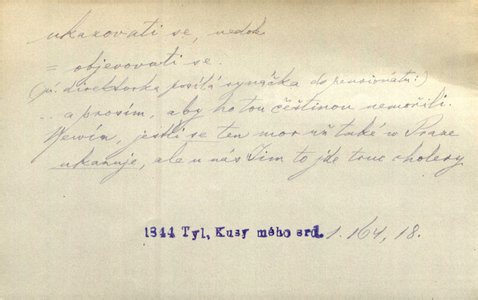 ukazovati se, nedok
= objevovati se.
(pí. direktorka posílá synáčka do pensionátu:)
.. a prosím, aby ho tou češtinou nemořili.
Newím, jestli se ten mor už také w Praze
ukazuje, ale u nás Jim to jde truc cholery
1844 Tyl, Kusy mého srd. 1. 164, 18.